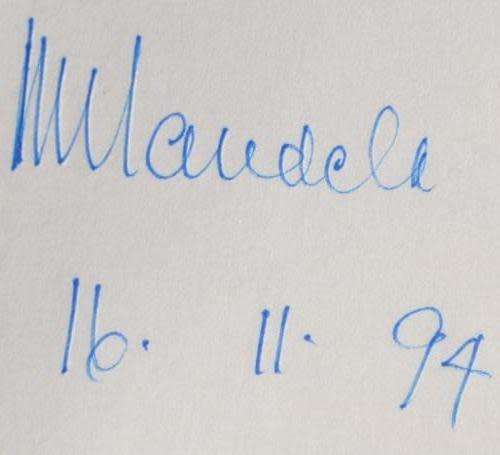 NMandela
16. 11. 94